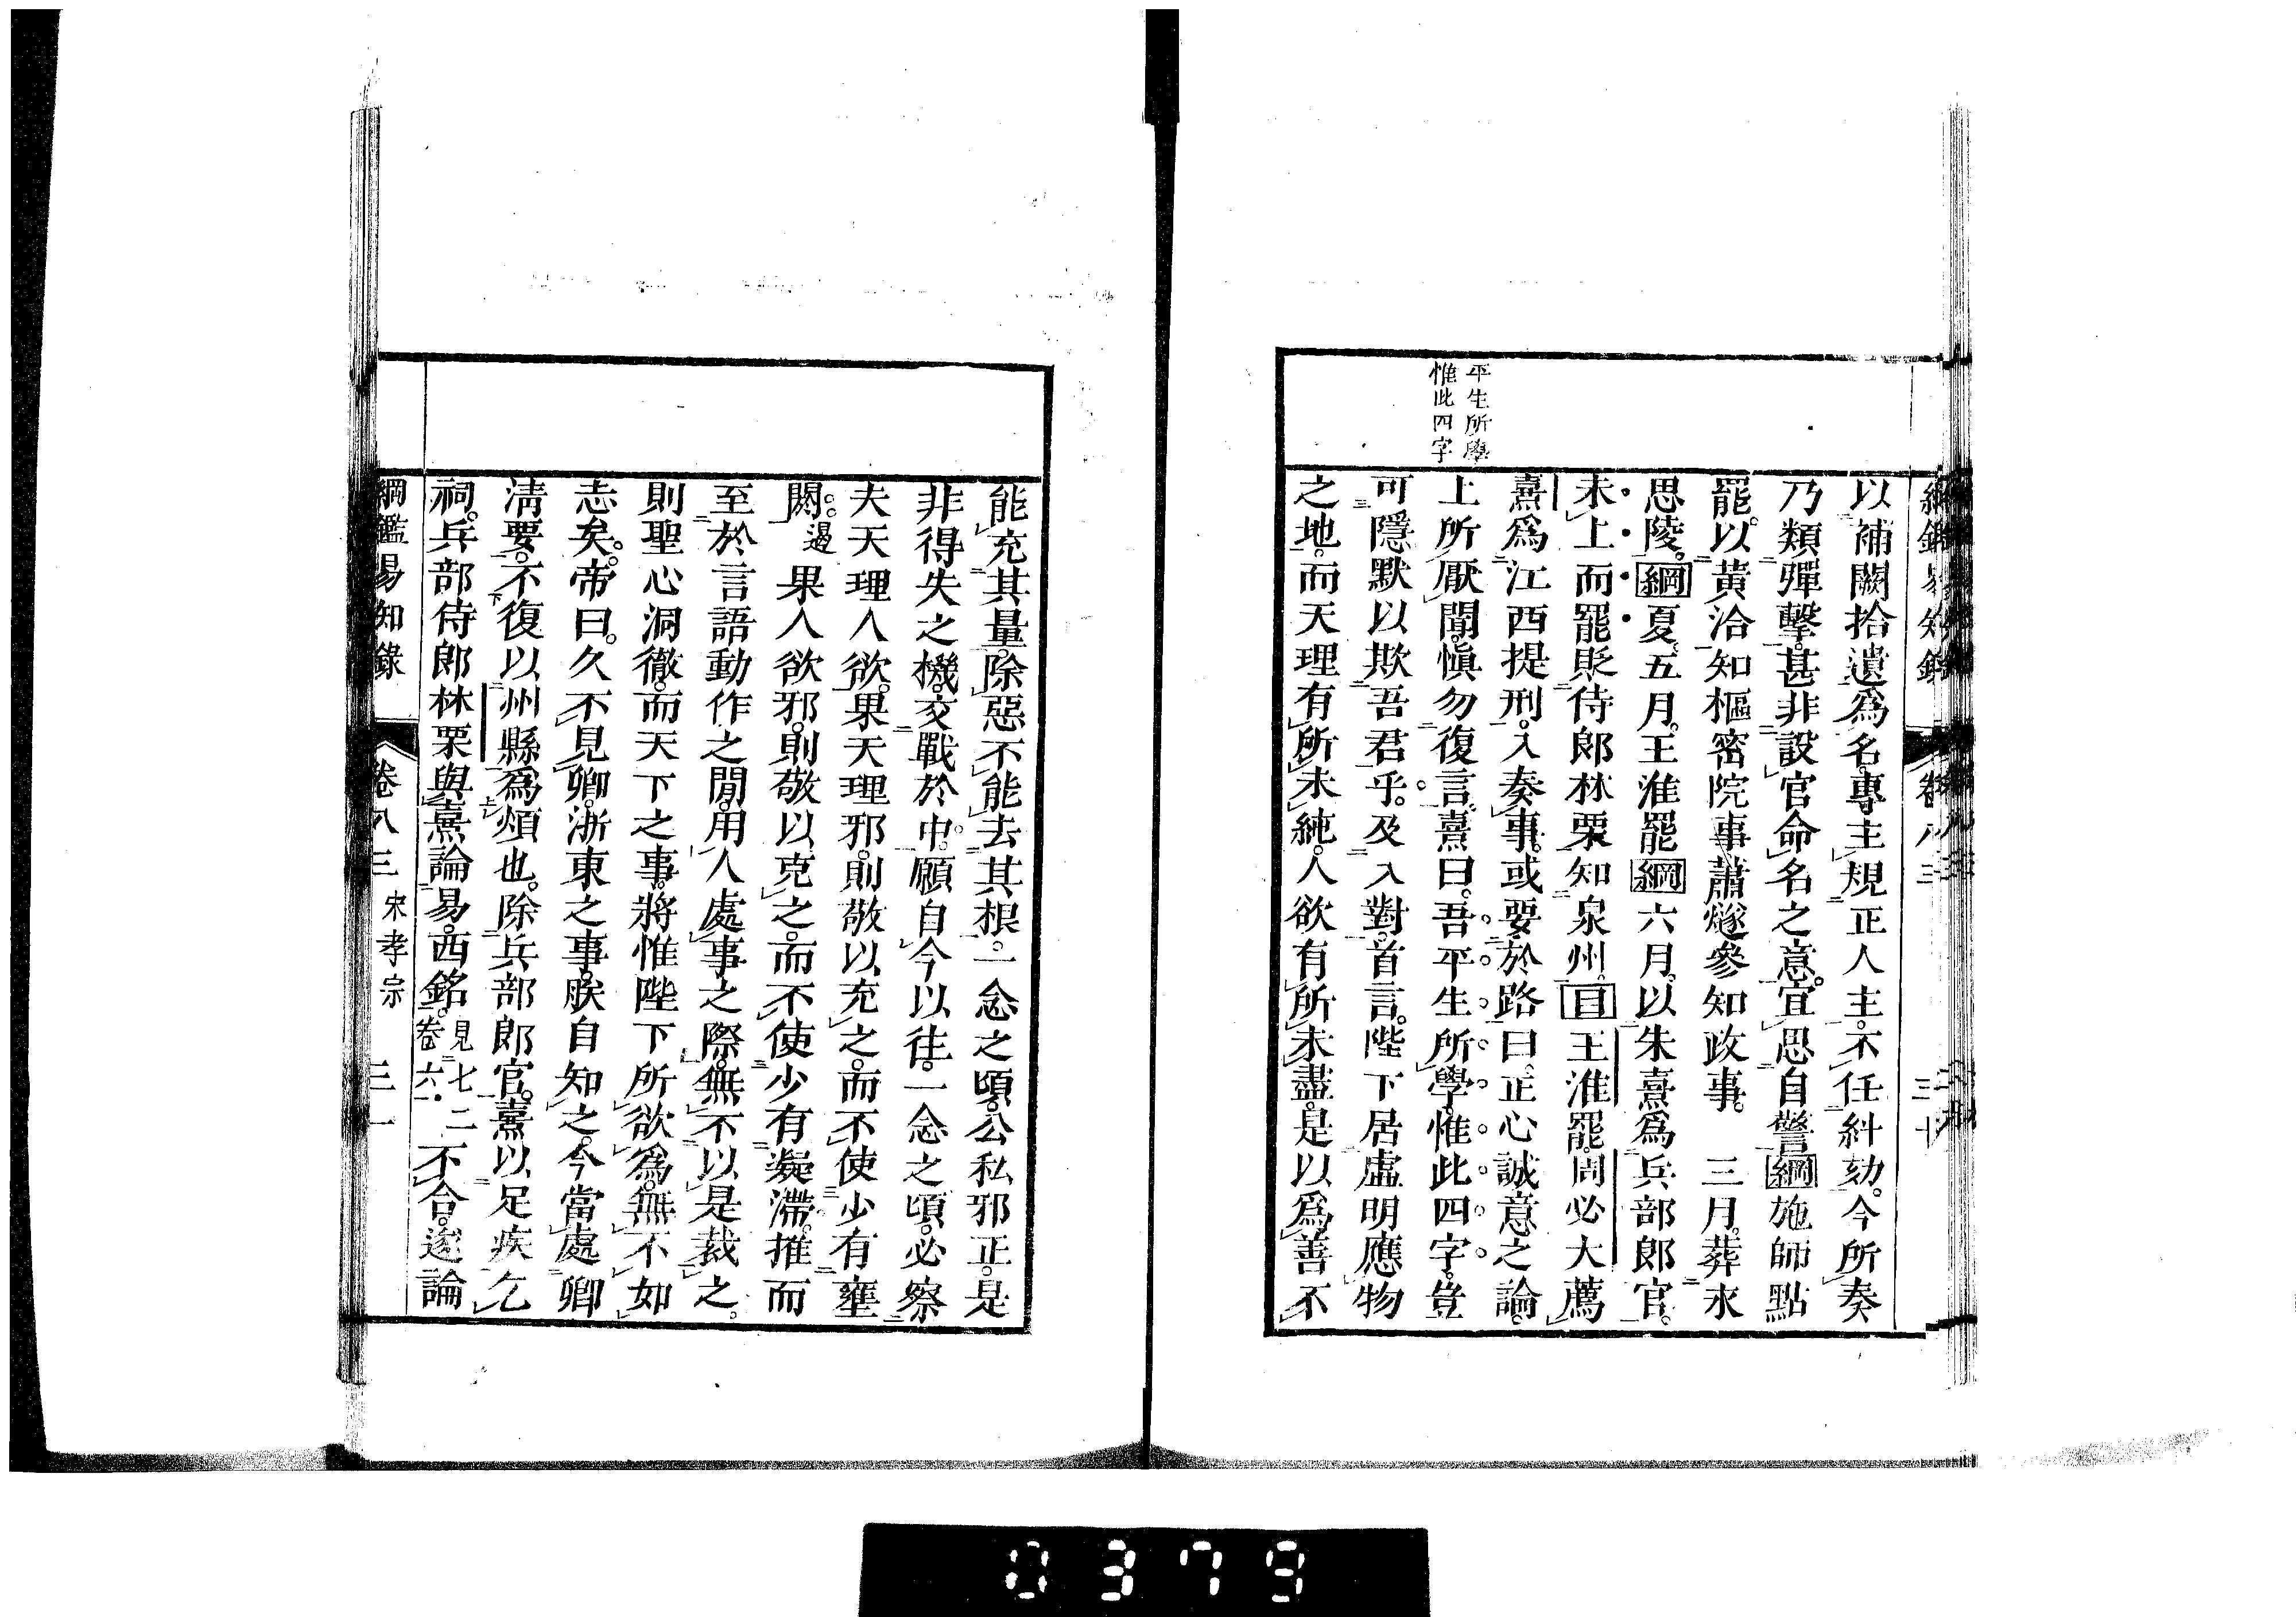 平生所學
惟此四字
以補闕拾遺爲名。專主規正人主。不任糾劾。今所奏
乃類彈擊。甚非設官命名之意。宜思自警綱施師點
罷。以黃洽知樞密院事蕭燧參知政事。三月。葬永
思陵。綱夏五月。王淮罷綱六月。以朱熹爲兵部郎官。
未上而罷貶侍郎林栗知泉州。目王淮罷。周必大薦
熹爲江西提刑。入奏事。或要於路曰。正心誠意之論。
上所厭聞。愼勿復言。熹曰。吾平生所學。惟此四字。豈
可隱默以欺吾君乎。及入對。首言。陛下居虛明應物
之地。而天理有所未純。人欲有所未盡。是以爲善不
能充其量。除惡不能去其根。一念之頃。公私邪正。是
非得失之機。交戰於中。願自今以往。一念之頃。必察
夫天理人欲。果天理邪。則敬以充之。而不使少有壅
閼。遏果人欲邪。則敬以克之。而不使少有凝滯。推而
至於言語動作之閒。用人處事之際。無不以是裁之。
則聖心洞徹。而天下之事。將惟陛下所欲爲。無不如
志矣。帝曰。久不見卿。浙東之事。朕自知之。今當處卿
淸要。不復以州縣爲煩也。除兵部郎官。熹以足疾乞
祠。兵部侍郎林栗與熹論易西銘。見七二卷六一不合。遂論
綱鑑易知錄 卷八三 宋孝宗 三一
0379